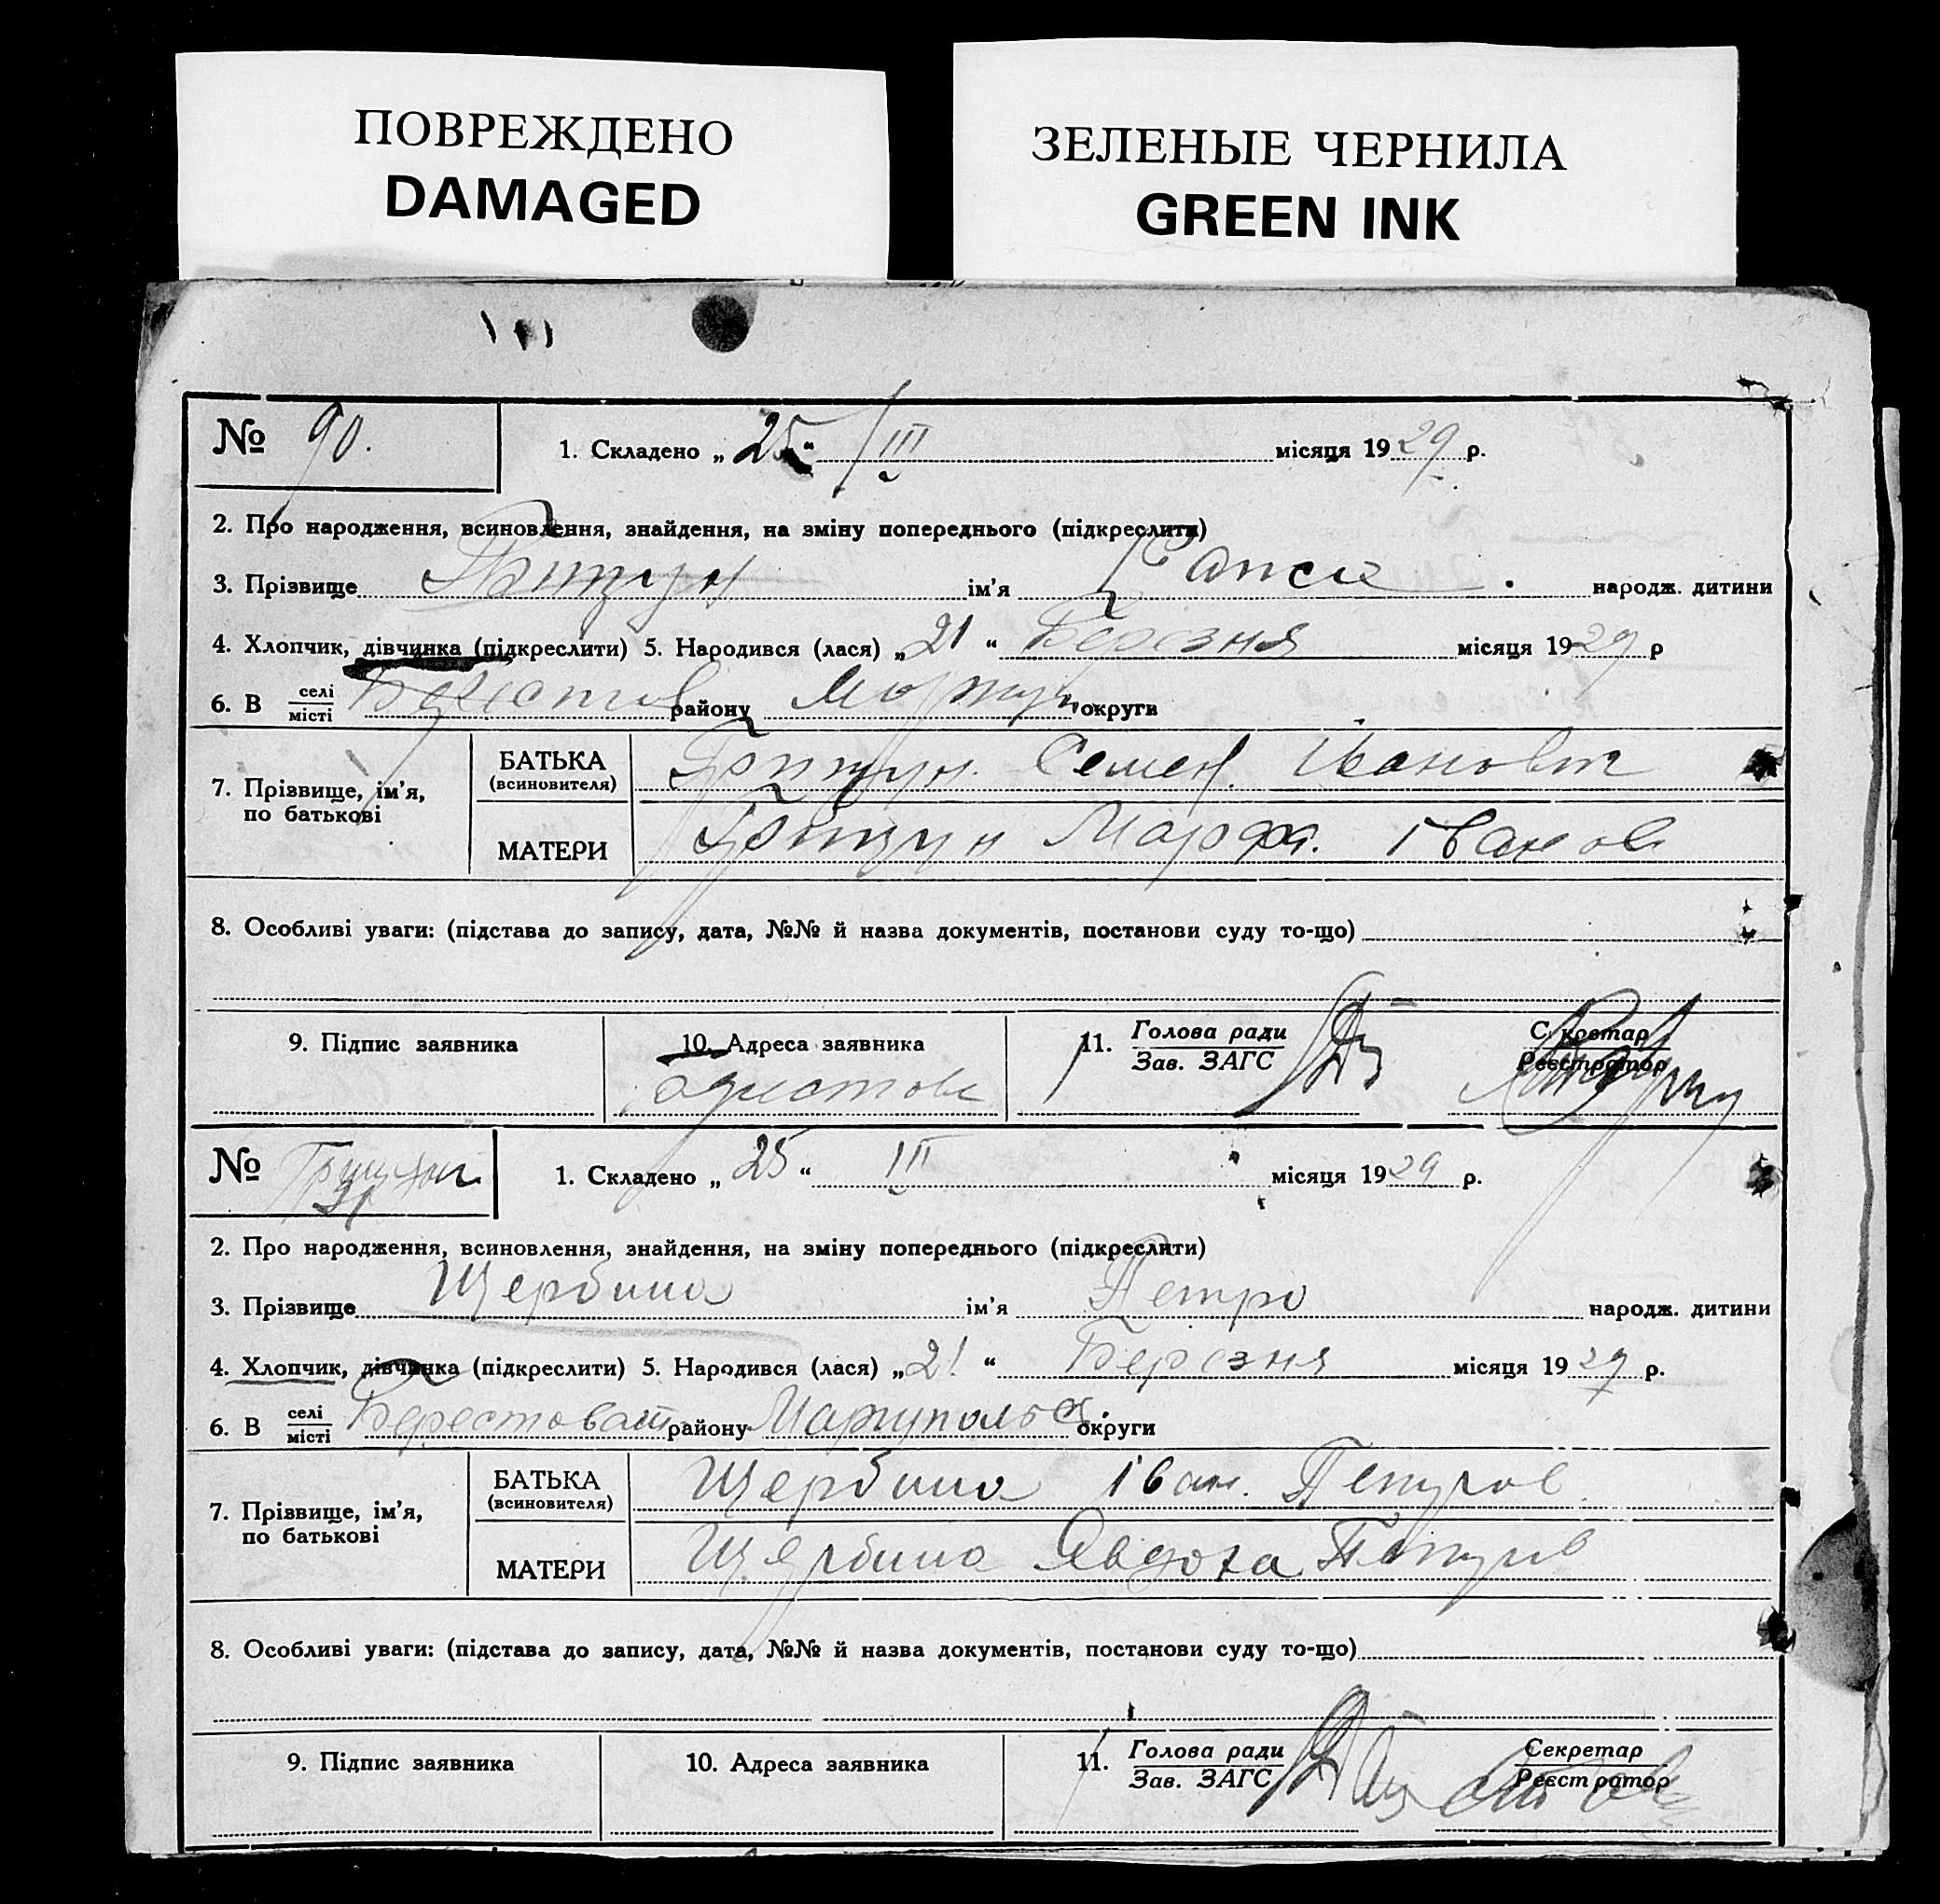 ПОВРЕЖДЕНО
DAMAGED
ЗЕЛЕНЫЕ ЧЕРНИЛА
GREEN INK
№ 90. 1. Складено „25“ /III місяця 1929 р.
2. Про народження, всиновлення, знайдення, на зміну попереднього (підкреслити)
3. Прізвище ім'я народж. дитини
4. Хлопчик, дівчинка (підкреслити) 5. Народився (лася) „21“ Березня місяця 1929 р
6. В селі/місті Берестов району Маріуп. округи
7. Прізвище, ім'я, по батькові
БАТЬКА (всиновителя) Семен Іванович
МАТЕРИ Марфа. Іванов
8. Особливі уваги: (підстава до запису, дата, №№ й назва документів, постанови суду то-що)
9. Підпис заявника
10. Адреса заявника
Берестове
11. Голова ради/Зав. ЗАГС
Секретар/Реєстратор
№ 1. Складено „25“ III місяця 1929 р.
2. Про народження, всиновлення, знайдення, на зміну попереднього (підкреслити)
3. Прізвище Щербина ім'я Петро народж. дитини
4. Хлопчик, дівчинка (підкреслити) 5. Народився (лася) „21“ Березня місяця 1929 р.
6. В селі/місті Берестоват району Маріупольск. округи
7. Прізвище, ім'я, по батькові
БАТЬКА (всиновителя) Щербина Іван. Петров
МАТЕРИ Щербина Явдоха
8. Особливі уваги: (підстава до запису, дата, №№ й назва документів, постанови суду то-що)
9. Підпис заявника
10. Адреса заявника
11. Голова ради/Зав. ЗАГС
Секретар/Реєстратор